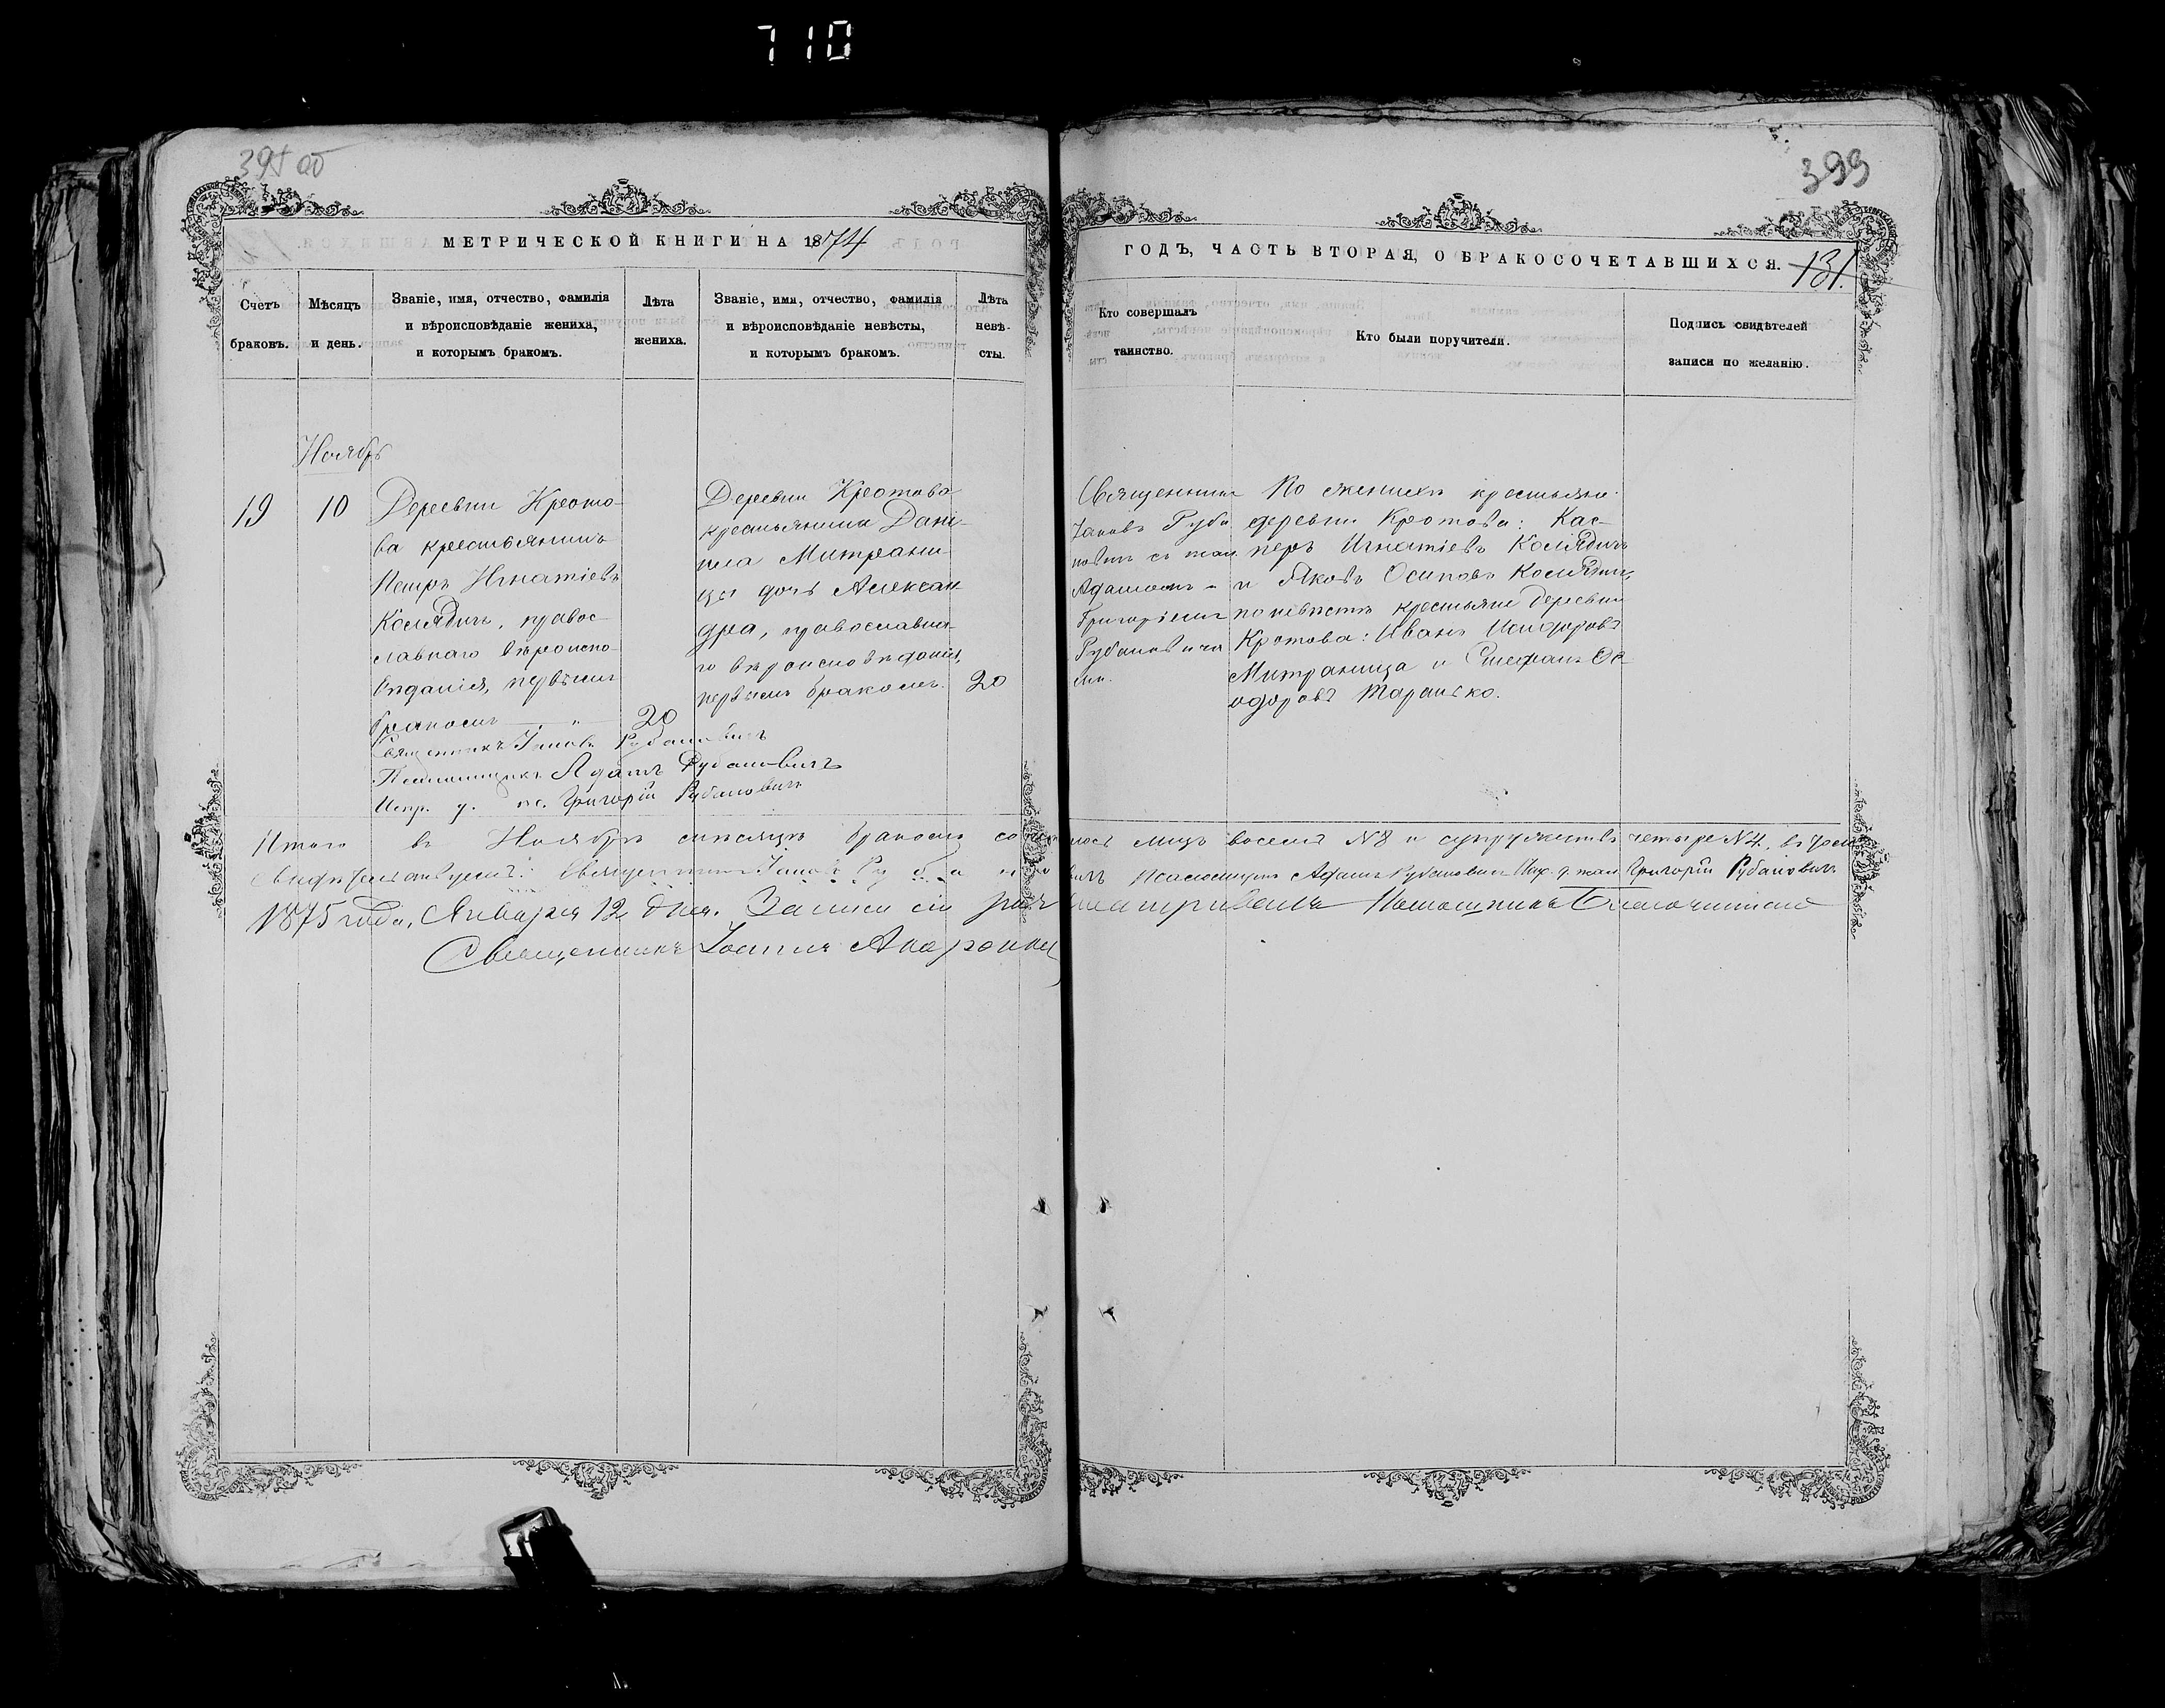 710
399
МЕТРИЧЕСКОЙ КНИГИ НА 1874
ГОДЪ, ЧАСТЬ ВТОРАЯ, О БРАКОСОЧЕТАВШИХСЯ.
131.
Счетъ
браковъ.
Мѣсяцъ
и день.
Званіе, имя, отчество, фамилія
и вѣроисповѣданіе жениха,
и которымъ бракомъ.
Лѣта
жениха.
Званіе, имя, отчество, фамилія
и вѣроисповѣданіе невѣсты,
и которымъ бракомъ.
Лѣта
невѣ-
сты.
Кто совершалъ
таинство.
Кто были поручители.
Подпись свидѣтелей
записи по желанію.
Ноябрь
19
10
Деревни Крото-
ва крестьянинъ
Петръ Игнатіевъ
Колядичъ, правос-
лавнаго вѣроиспо-
вѣданія, первымъ
бракомъ — „ —
20
Деревни Кротова
крестьянина Дані-
ила Митрани-
цы дочь Алексан-
дра, православна-
го вѣроисповѣданія,
первымъ бракомъ.
20
Священникъ
Іаковъ Руба
новичъ съ
Адамомъ и
Григоріемъ
Рубановича
ми.
По женихѣ крестьяне
деревни Кротова: Кас-
перъ Игнатіевъ Колядичъ
и Яковъ Осиповъ Колядичъ,
по невѣстѣ крестьяне деревни
Кротова: Иванъ Исидоровъ
Митраница и Стефанъ Ѳе-
одоровъ Таранко.
Священникъ Іаковъ Рубановичъ
Псаломщикъ Адамъ Рубановичъ
Испр. д. пс. Григорій Рубановичъ
Итого въ Ноябрѣ мѣсяцѣ бракомъ лицъ восемь №8 и супружествъ четыре №4, въ чемъ
свидѣтельствуемъ: Священникъ Іаковъ Рубановичъ Псаломщикъ Адамъ Рубановичъ Григорій Рубановичъ
1875 года, Января 12 дня. Записи сіи Помощникъ Благочиннаго
Священникъ Іоаннъ